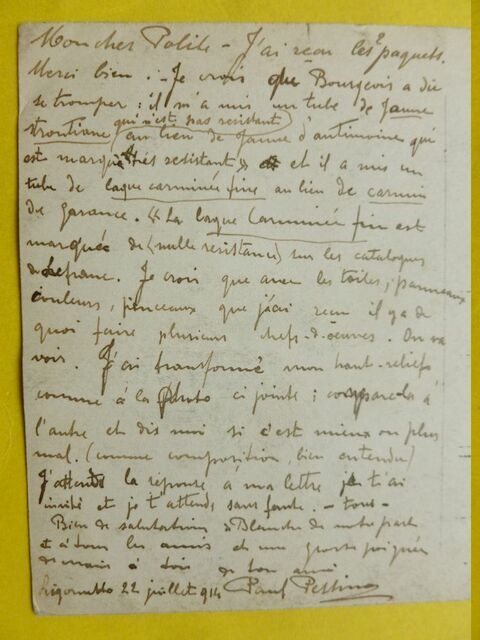 Mon cher Polite - J'ai reçu les 2 paquets.
Merci bien. - Je crois que Bourgeois a dû
se tromper : il m'a mis un tube de Jaune
Strontiane (qui n'est pas resistant) au lieu de Jaune d'antimoine qui
est marqué "très resistant" et il a mis un
tube de laque carminée fine au lieu de carmin
de garance. "La laque Carminée fine est
marquée de (nulle resistance) sur les catalogues
de Lefranc. Je crois que avec les toiles, panneaux
couleurs, pinceaux que j'ai reçu il y a de
quoi faire plusieurs chefs-d'oeuvres. On va
voir. J'ai transformé mon haut-reliefs
comme à la photo ci jointe ; compare la à
l'autre et dis moi si c'est mieux ou plus
mal. (comme composition, bien entendu)
J'attends la réponse à ma lettre je t'ai
invité et je t'attends sans faute. - tous -
Bien de salutations à Blanche de notre part
et à tous les amis et une grosse poignée
de mains à toi de ton ami
22 juillet 914 Paul